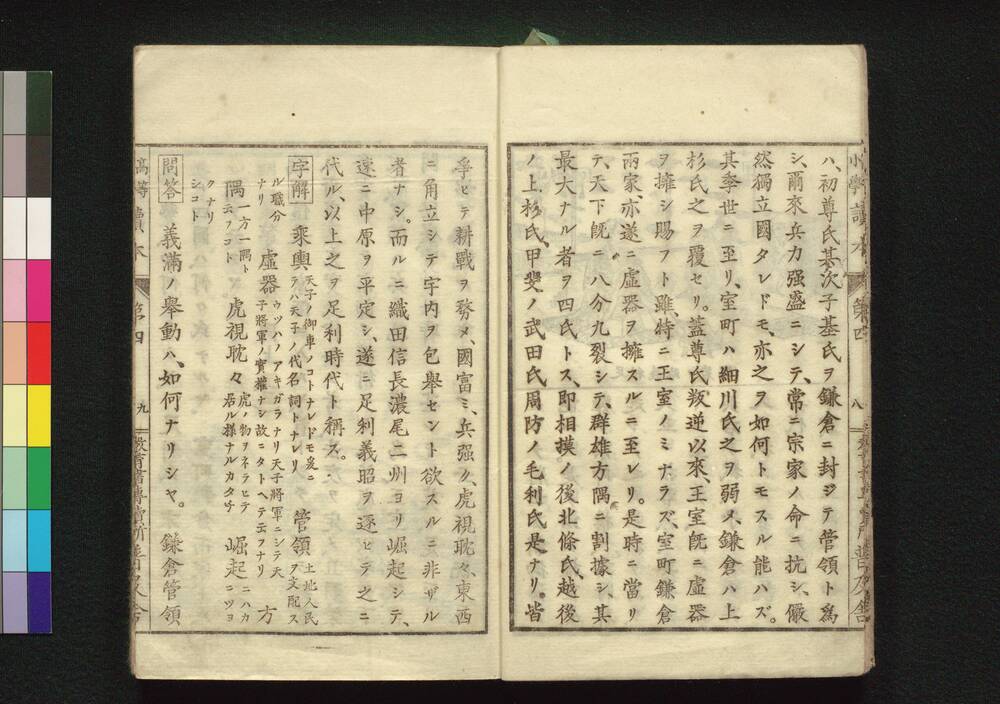 ハ、初尊氏其次子基氏ヲ鎌倉ニ封ジテ管領ト爲
シ、爾來兵力强盛ニシテ、常ニ宗家ノ命ニ抗シ、儼
然獨立國タレドモ、亦之ヲ如何トモスル能ハズ。
其季世ニ至リ、室町ハ細川氏之ヲ弱メ、鎌倉ハ上
杉氏之ヲ覆セリ。蓋尊氏叛逆以來、王室既ニ虛器
ヲ擁シ賜フト雖、特ニ王室ノミナラズ、室町鎌倉
兩家亦遂ニ虛器ヲ擁スルニ至レリ。是時ニ當リ
テ、天下既ニ八分九裂シテ、群雄方隅ニ割據シ、其
最大ナル者ヲ四氏トス、即相摸ノ後北條氏、越後
ノ上杉氏、甲斐ノ武田氏、周防ノ毛利氏是ナリ。皆
小學讀本 第四 八
爭ヒテ耕戰ヲ務メ、國富ミ、兵强ク、虎視耽々、東西
ニ角立シテ宇内ヲ包擧セント欲スルニ非ザル
者ナシ。而ルニ織田信長濃尾二州ヨリ崛起シテ、
速ニ中原ヲ平定シ、遂ニ足利義昭ヲ逐ヒテ之ニ
代ル、以上之ヲ足利時代ト稱ス。
字解 乘輿 天子ノ御車ノコトナレドモ爰ニテハ天子ノ代名詞トナレリ 管領 土地人民ヲ支配ス
ル職分ナリ 虛器 ウツハノアキガラナリ天子將軍ニシテ天子將軍ノ實權ナシ故ニタトヘテ云フナリ 方
隅 一方一隅ト云フコト 虎視耽々 虎ノ物ヲネラヒテ居ル樣ナルカタチ 崛起 ニハカニツヨ
クナリシコト
問答 義滿ノ擧動ハ、如何ナリシヤ。 鎌倉管領
高等讀本 第四 九 教育書專賣所普及舍